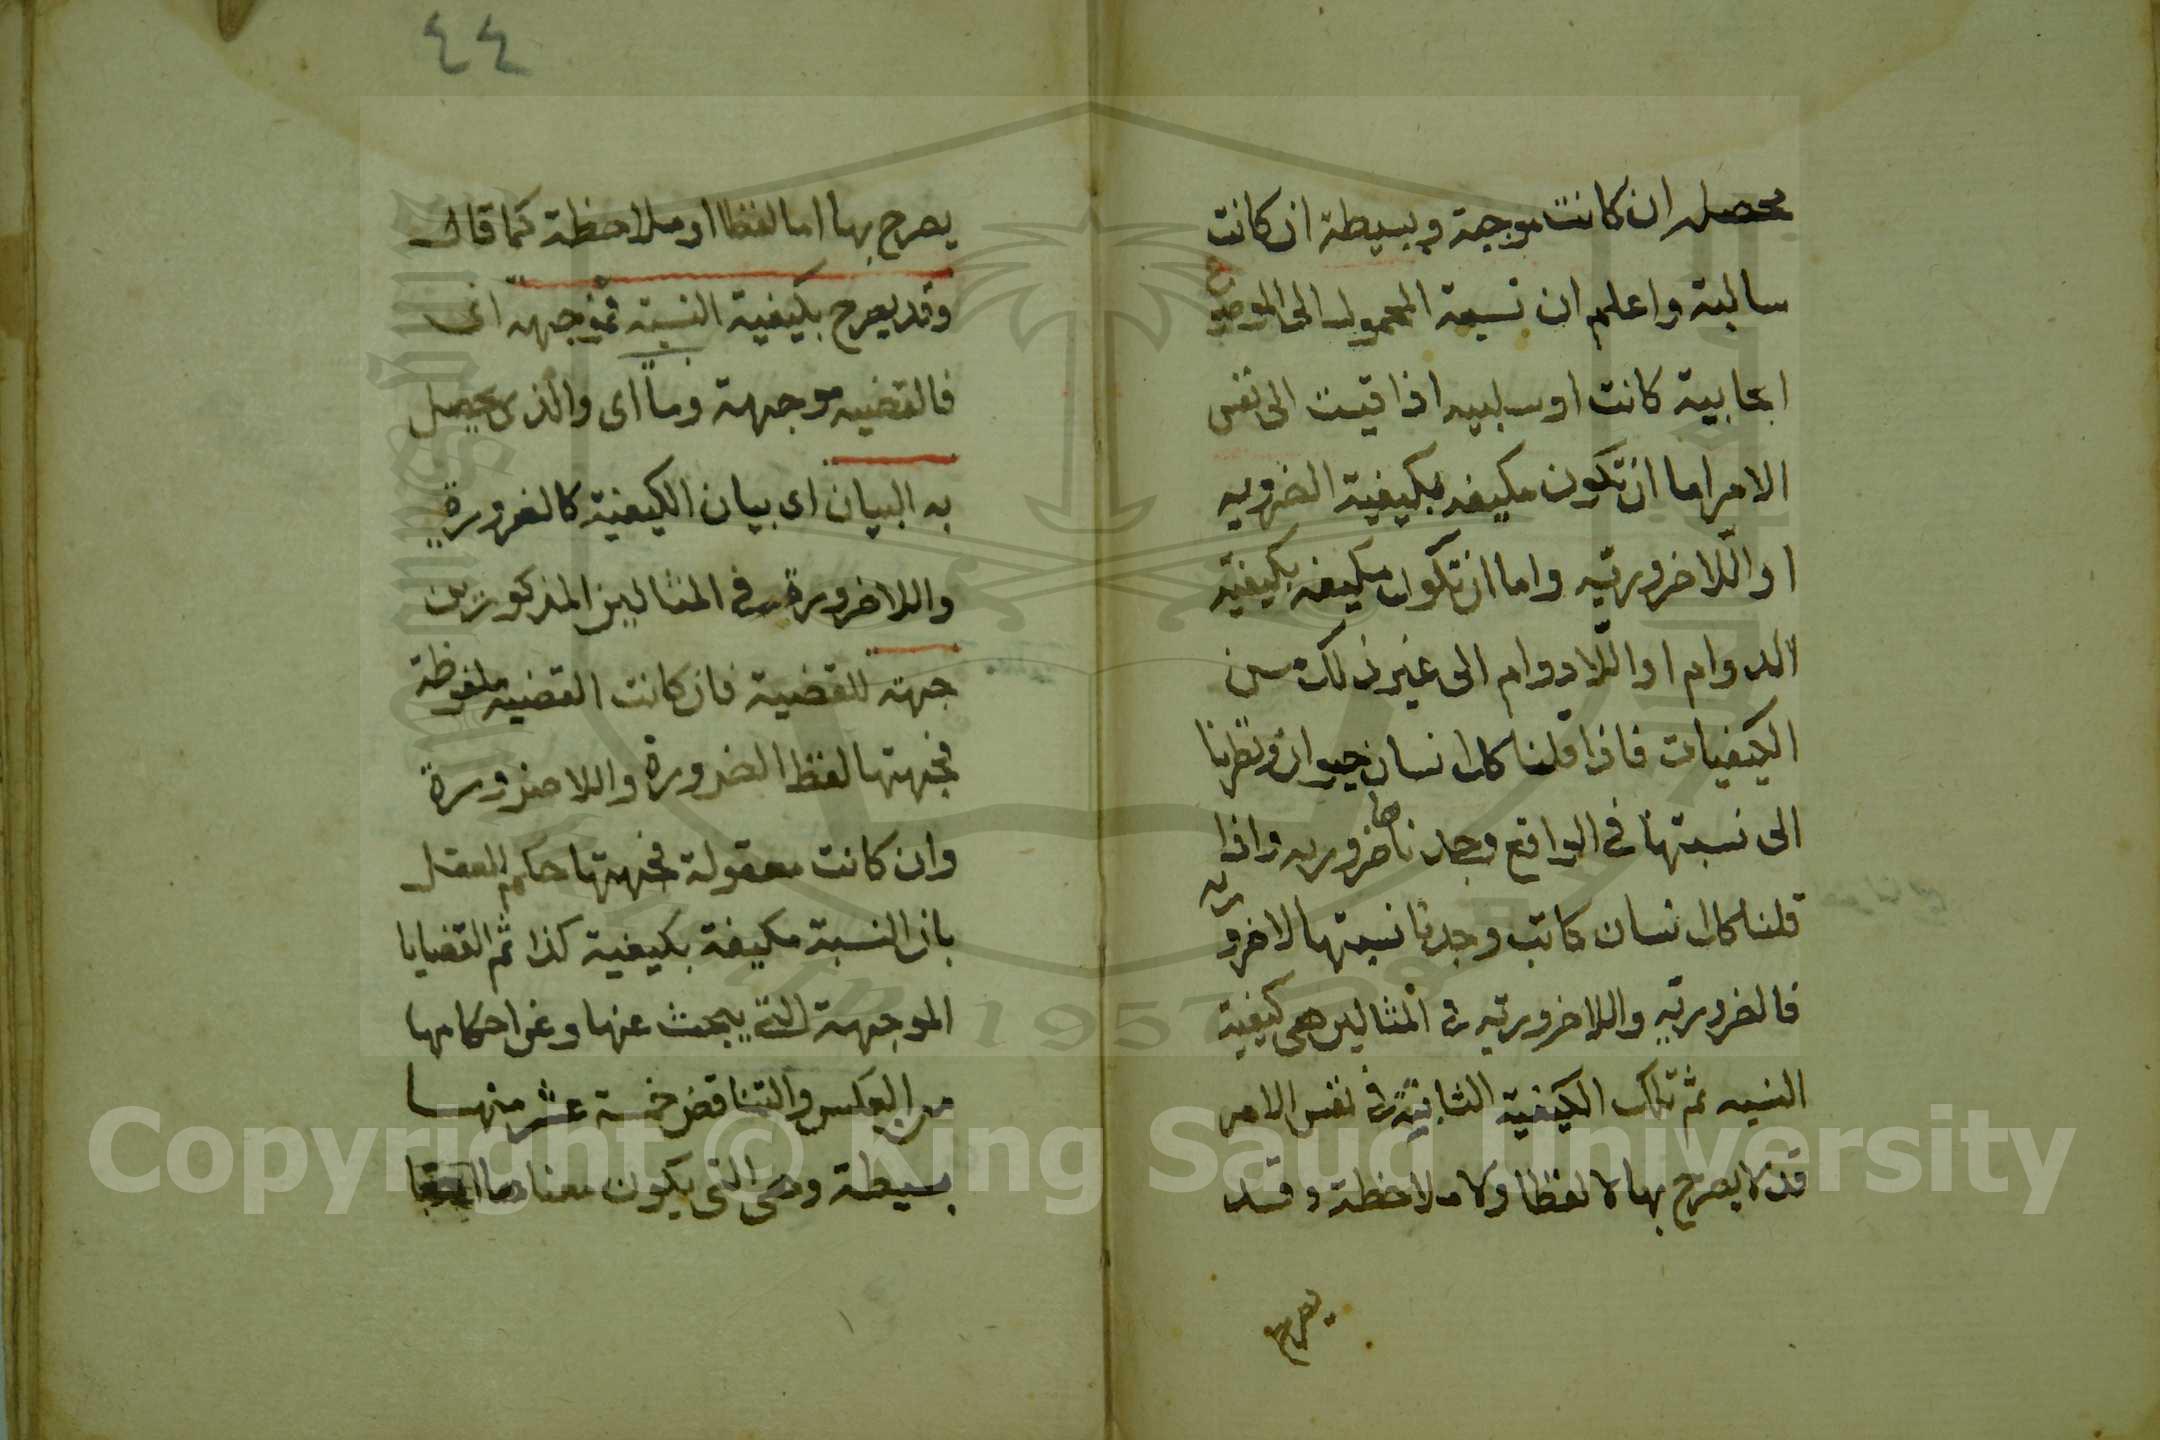 محصله ان كانت موجبة وبسيطة ان كانت
سالبة واعلم ان نسبة المحمول الى الموضوع
ايجابية كانت او سلبيه اذا قيست الى نفس
الامر اما ان تكون مكيفه بكيفية الضروريه
او اللاضروريه واما ان تكون مكيفه بكيفية
الدوام او اللادوام الى غير ذلك من
الكيفيات فاذا قلنا كل انسان حيوان ونظرنا
الى نسبتها في الواقع وجدناها ضروريه واذا
قلنا كل انسان كاتب وجدنا نسبتها لاضروريه
فالضروريه واللاضروريه في المثالين هي كيفية
النسبه ثم تلك الكيفية الثابتة في نفس الامر
قد لا يصرح بها لا لفظا ولا ملاحظة وقد
يصرح
٤٤
يصرح بها اما لفظا او ملاحظة كما قال
وقد يصرح بكيفية النسبة فموجهه اى
فالقضيه موجهة وما اى والذى يحصل
به البيان اى بيان الكيفية كالضرورة
واللاضرورة في المثالين المذكورين
جهة للقضية فان كانت القضيه ملفوظة
فجهتها لفظ الضرورة واللاضرورة
وان كانت معقولة فجهتها حكم العقل
بان النسبة مكيفة بكيفية كذا ثم القضايا
الموجهة التى يبحث عنها وعن احكامها
من العكس والتناقض خمسة عشر منها
بسيطة وهى التى يكون معناها
Copyright © King Saud University
1957